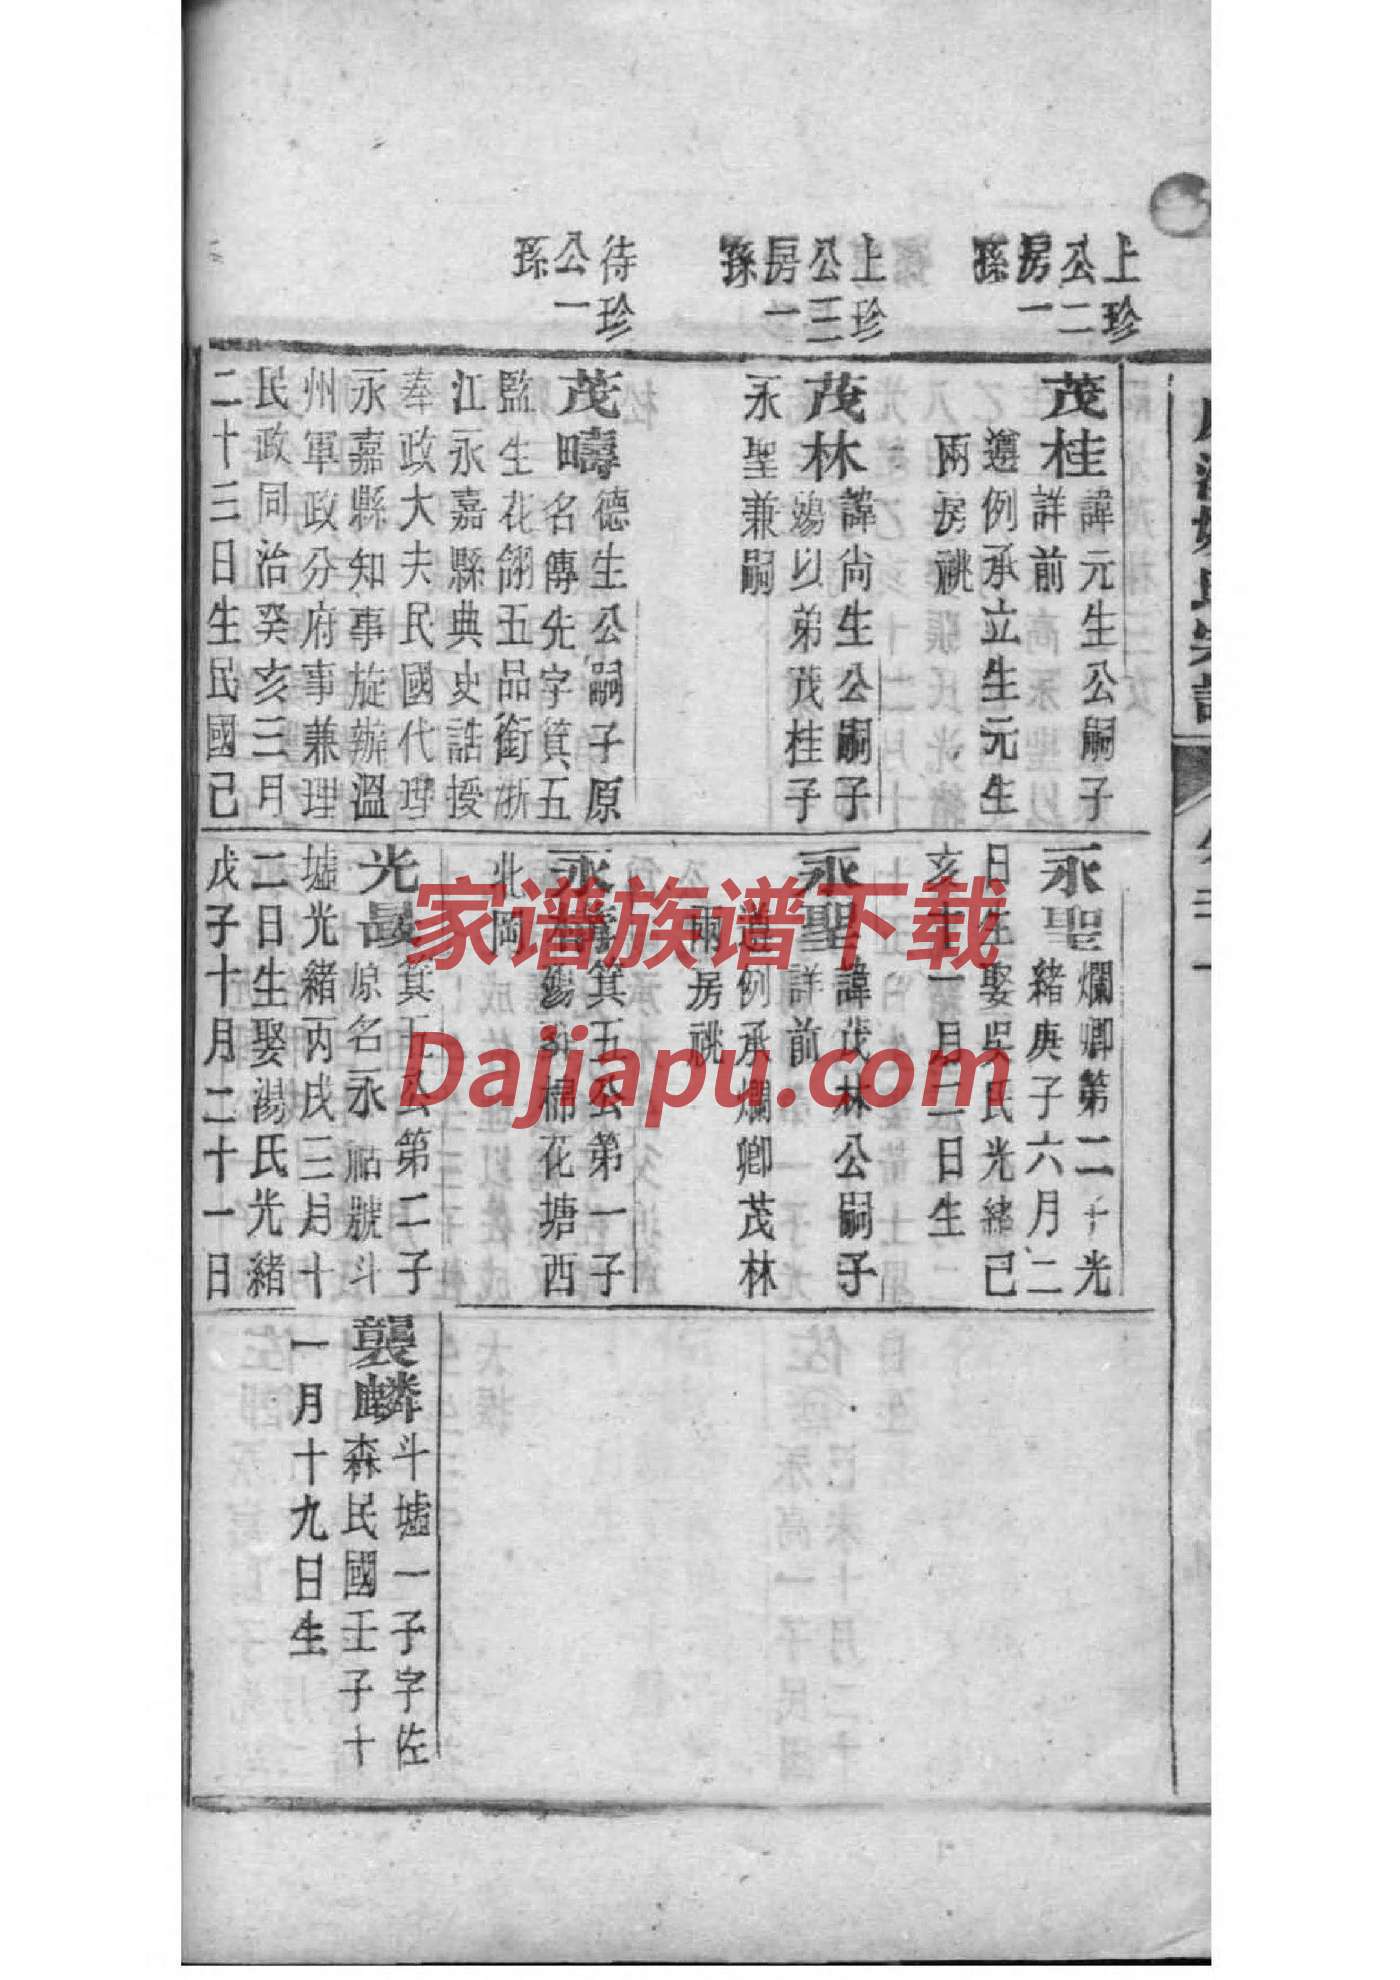 上珍
公二
房一
孫
上珍
公三
房一
孫
待珍
公一
孫
茂桂
諱元生公嗣子
詳前
遵例承立生元生
兩房祧
茂林
諱尚生公嗣子
殤以弟茂桂子
永聖兼嗣
茂疇
德生公嗣子原
名傳先字箕五
監生花翎五品銜浙
江永嘉縣典史誥授
奉政大夫民國代理
永嘉縣知事旋辦溫
州軍政分府事兼理
民政同治癸亥三月
二十三日生民國己
永聖
爛卿第二子光
緒庚子六月二
日生娶吳氏光緒己
亥十一月二日生
永聖
諱茂林公嗣子
詳前
遵例承爛卿茂林
兩房祧
永
箕五公第一子
殤葬棉花塘西
北岡
光勗
箕五公第二子
原名永勗號斗
墟光緒丙戌三月十
二日生娶湯氏光緒
戊子十月二十一日
襲麟
斗墟一子字佐
森民國壬子十
一月十九日生
家谱族谱下载
Dajiapu.com